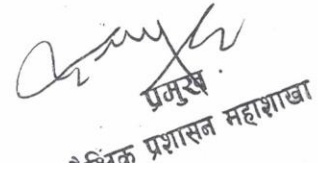 प्रमुख
शैक्षिक प्रशासन महाशाखा